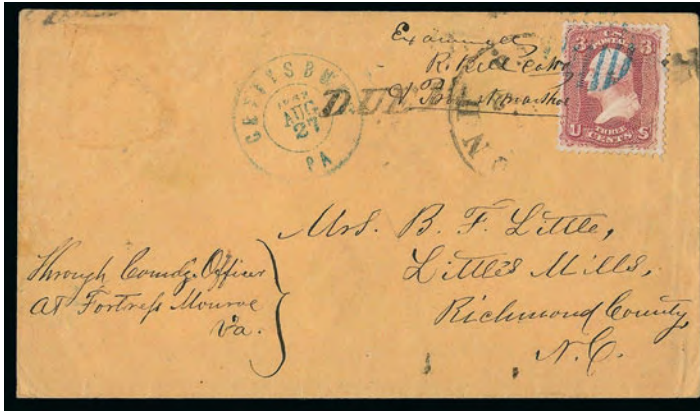 Examined
R. Hill Catn
GETTYSBU
AUG
27
PA
DUE
3 U.S. POSTAGE 3
U THREE CENTS S
Mrs. B. F. Little,
Little's Mills,
Richmond County,
N.C.
Through Comdg. Officer
At Fortress Monroe
Va.